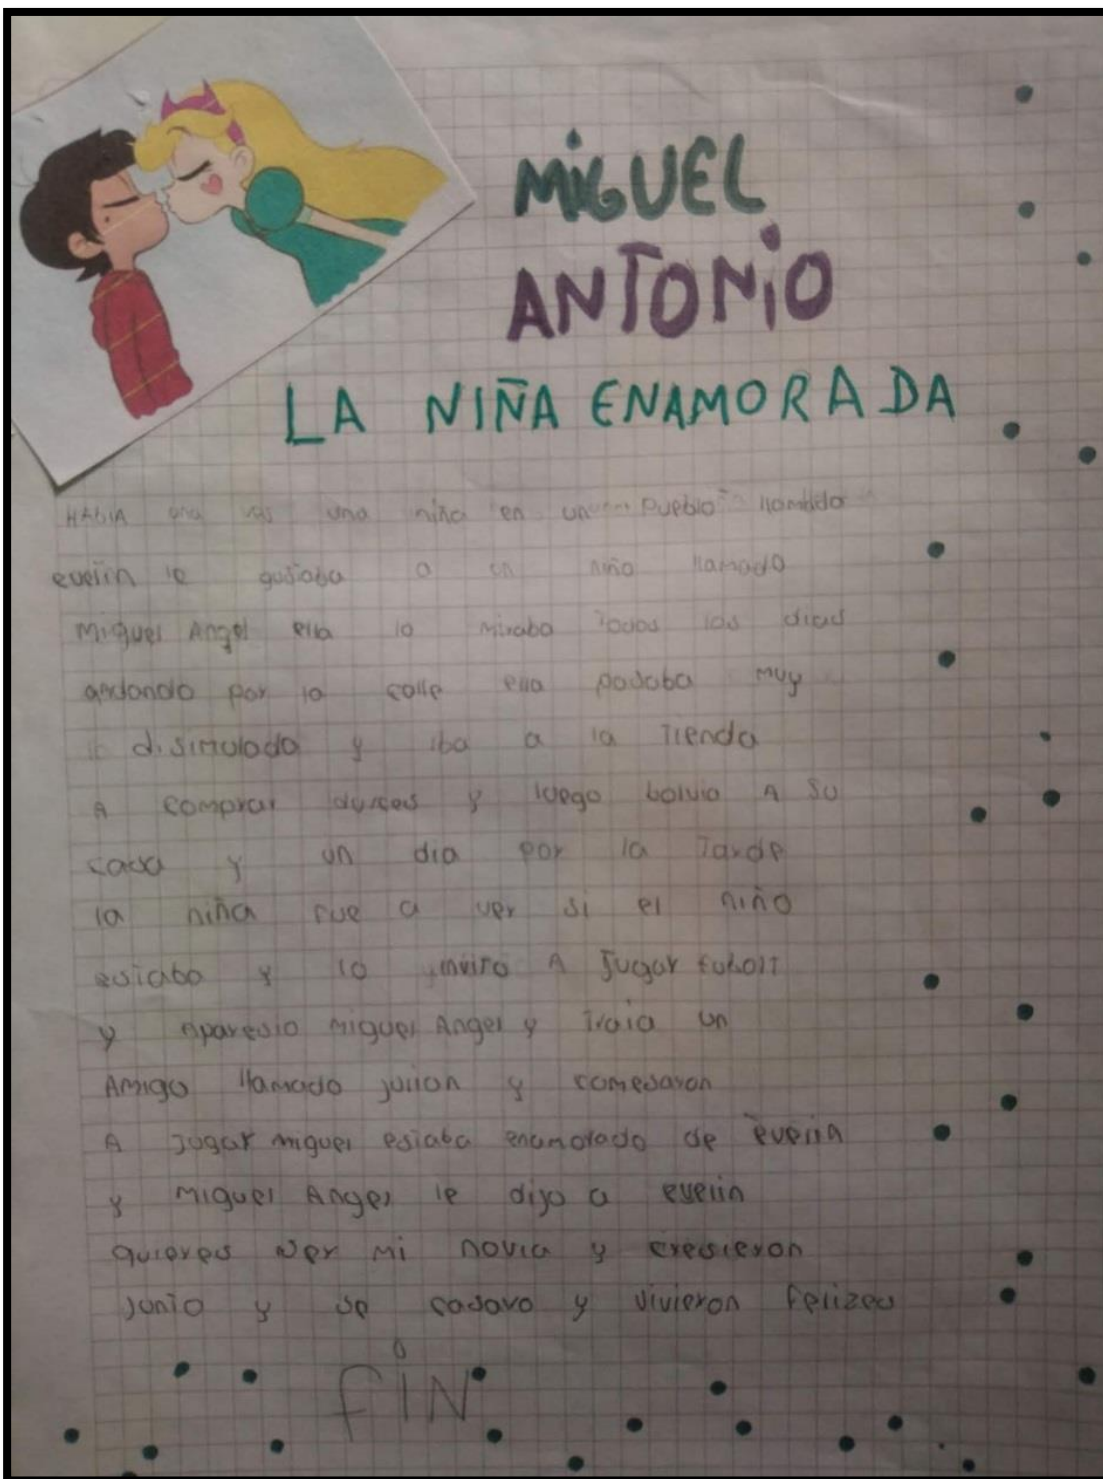 MIGUEL
ANTONIO
LA NIÑA ENAMORADA
HABIA una ves una niña en un Pueblo llamada
evelin le gustaba a un niño llamado
Miguel Angel ella lo miraba Todos los dias
andando por la calle ella pasaba muy
disimulada y iba a la Tienda
A comprar dulces y luego bolvia A su
casa y un dia por la Tarde
la niña fue a ver si el niño
estaba y lo invito A Jugar
y Aparesio Miguel Angel y Traia un
Amigo llamado julian y comesaron
A Jugar miguel estaba enamorado de evelin
y Miguel Angel le dijo a evelin
quieres ser mi novia y cresieron
junto y se casaro y vivieron felizes
fiN